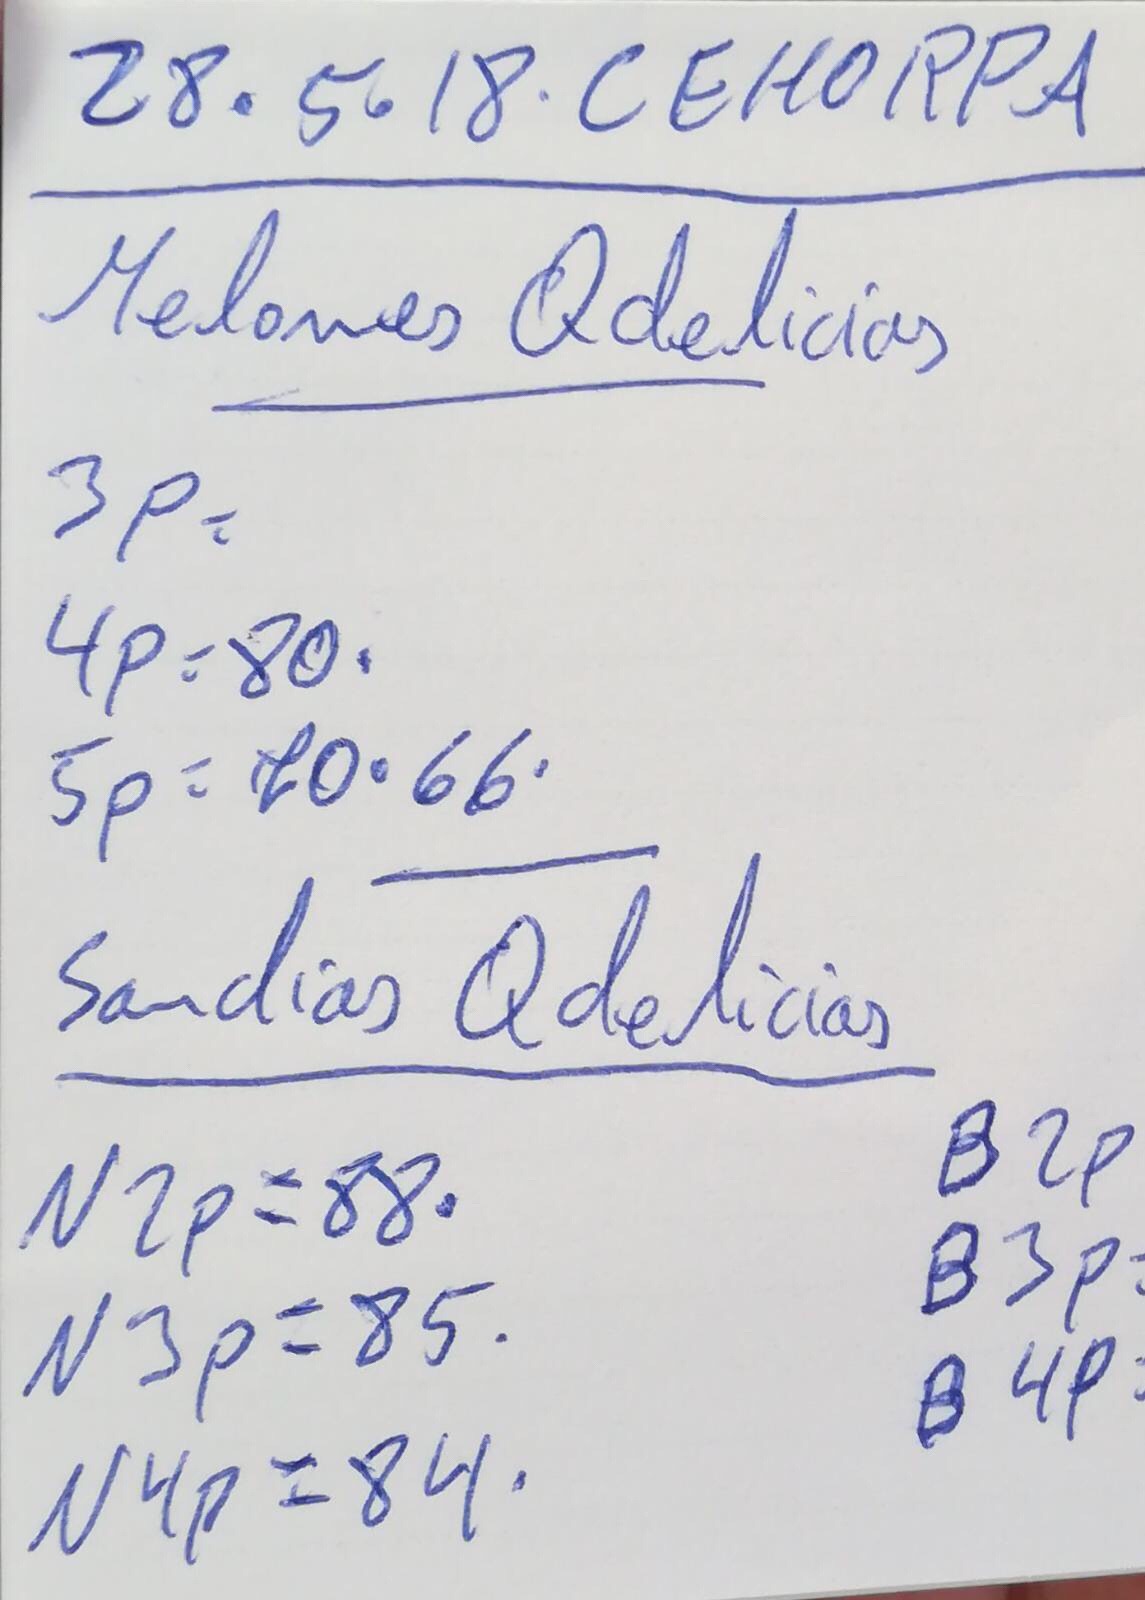 28.5.18.CEHORPA
Melones Qdelicias
3p=
4p=80.
5p=70.66.
Sandias Qdelicias
N2p=88. B2p
N3p=85. B3p=
N4p=84. B4p=